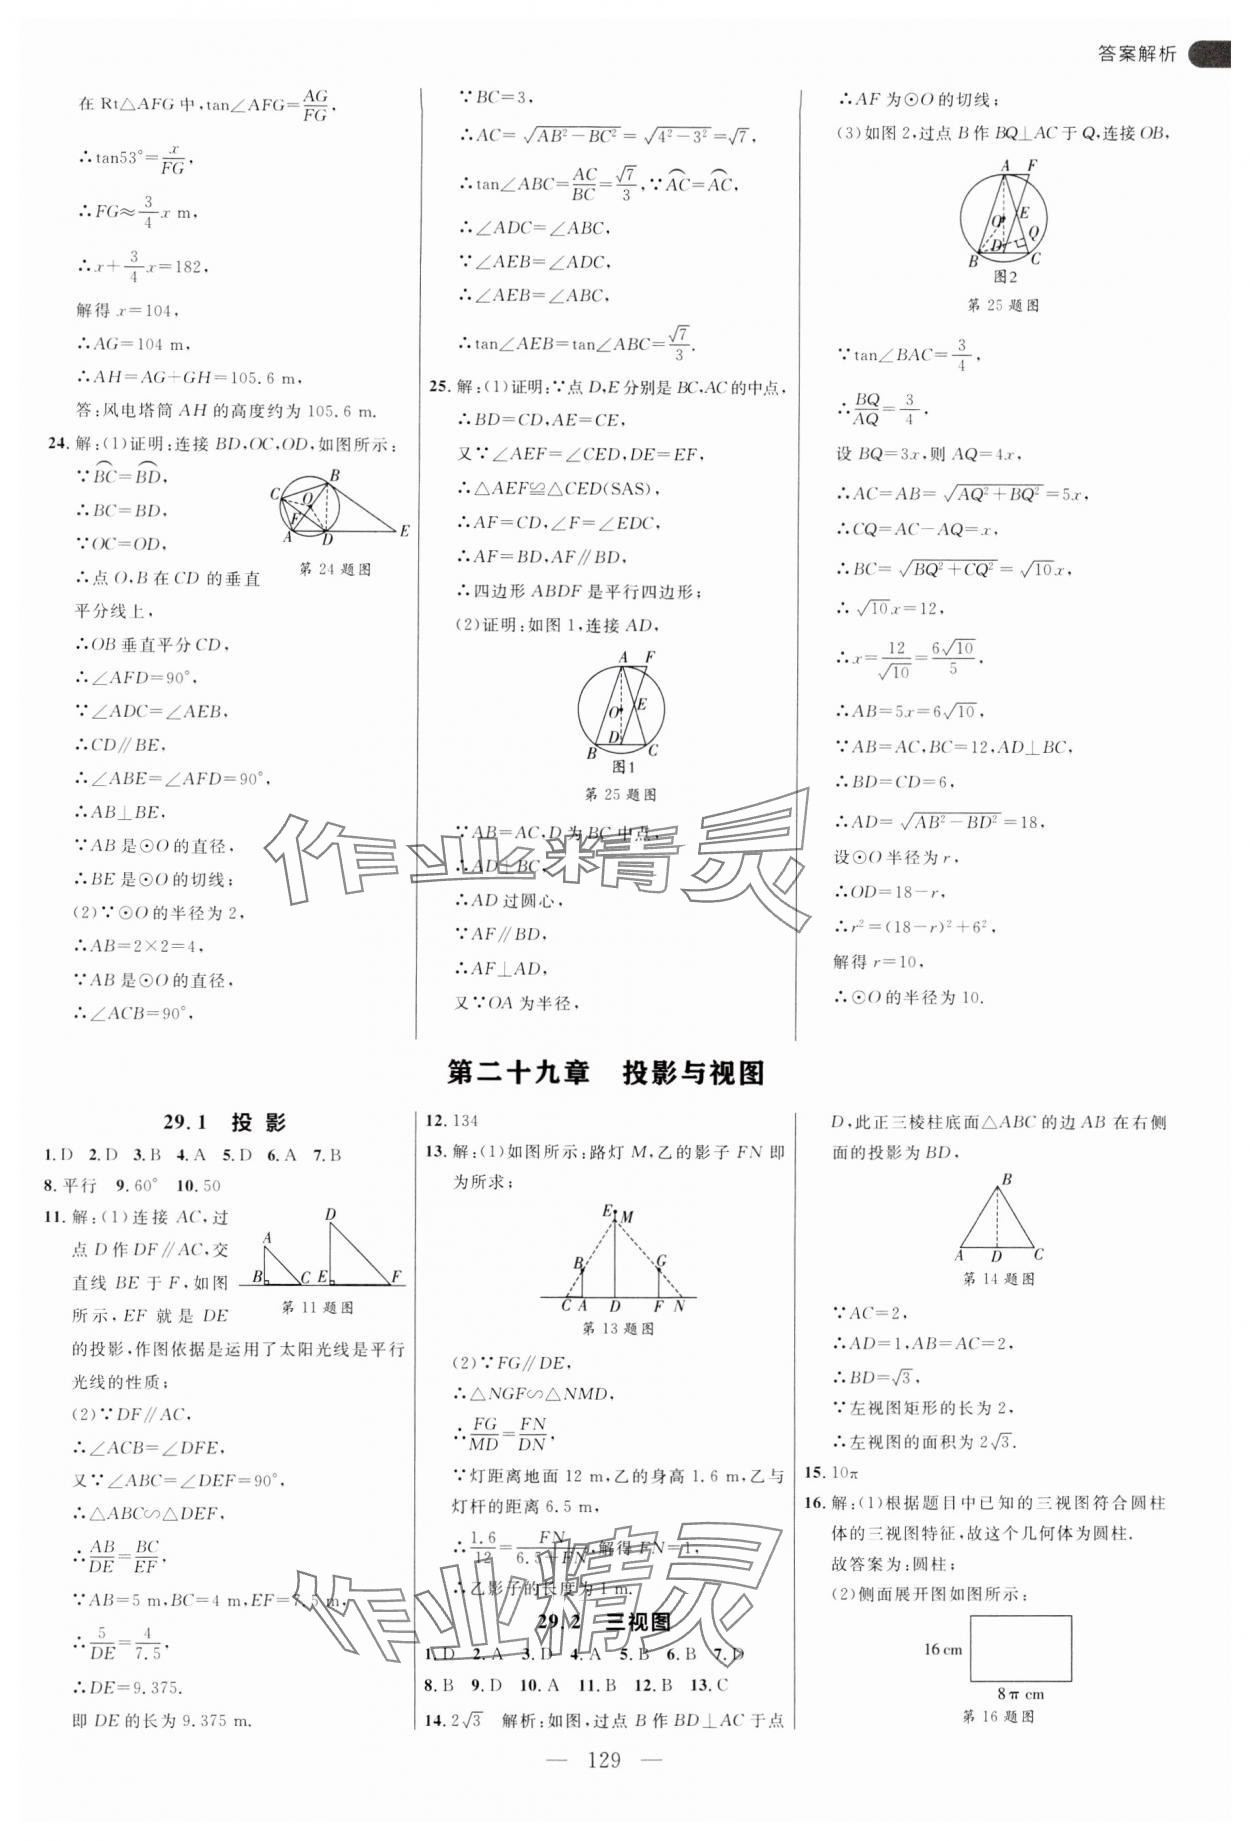 答案解析
在 Rt△AFG 中,tan∠AFG=AG/FG,
∴tan53°=x/FG,
∴FG≈3/4 x m,
∴x+3/4 x=182,
解得 x=104,
∴AG=104 m,
∴AH=AG+GH=105.6 m,
答:风电塔筒 AH 的高度约为 105.6 m.
24. 解:(1)证明:连接 BD,OC,OD,如图所示:
∵⌒BC=⌒BD,
∴BC=BD,
∵OC=OD,
∴点 O,B 在 CD 的垂直
平分线上,
B
C
O
F
A
D
E
第 24 题图
∴OB 垂直平分 CD,
∴∠AFD=90°,
∵∠ADC=∠AEB,
∴CD∥BE,
∴∠ABE=∠AFD=90°,
∴AB⊥BE,
∵AB 是⊙O 的直径,
∴BE 是⊙O 的切线;
(2)∵⊙O 的半径为 2,
∴AB=2×2=4,
∵AB 是⊙O 的直径,
∴∠ACB=90°,
∵BC=3,
∴AC=√(AB²-BC²)=√(4²-3²)=√7,
∴tan∠ABC=AC/BC=√7/3,∵⌒AC=⌒AC,
∴∠ADC=∠ABC,
∵∠AEB=∠ADC,
∴∠AEB=∠ABC,
∴tan∠AEB=tan∠ABC=√7/3.
25. 解:(1)证明:∵点 D,E 分别是 BC,AC 的中点,
∴BD=CD,AE=CE,
又∵∠AEF=∠CED,DE=EF,
∴△AEF≌△CED(SAS),
∴AF=CD,∠F=∠EDC,
∴AF=BD,AF∥BD,
∴四边形 ABDF 是平行四边形;
(2)证明:如图 1,连接 AD,
A F
O E
D
B C
图1
第 25 题图
∵AB=AC,D 为 BC 中点,
∴AD⊥BC,
∴AD 过圆心,
∵AF∥BD,
∴AF⊥AD,
又∵OA 为半径,
∴AF 为⊙O 的切线;
(3)如图 2,过点 B 作 BQ⊥AC 于 Q,连接 OB,
A F
O E
Q
B D C
图2
第 25 题图
∵tan∠BAC=3/4,
∴BQ/AQ=3/4,
设 BQ=3x,则 AQ=4x,
∴AC=AB=√(AQ²+BQ²)=5x,
∴CQ=AC-AQ=x,
∴BC=√(BQ²+CQ²)=√10x,
∴√10x=12,
∴x=12/√10=6√10/5,
∴AB=5x=6√10,
∵AB=AC,BC=12,AD⊥BC,
∴BD=CD=6,
∴AD=√(AB²-BD²)=18,
设⊙O 半径为 r,
∴OD=18-r,
∴r²=(18-r)²+6²,
解得 r=10,
∴⊙O 的半径为 10.
第二十九章 投影与视图
29.1 投影
1. D 2. D 3. B 4. A 5. D 6. A 7. B
8. 平行 9. 60° 10. 50
11. 解:(1)连接 AC,过
点 D 作 DF∥AC,交
直线 BE 于 F,如图
所示,EF 就是 DE
D
A
B C E F
第 11 题图
的投影,作图依据是运用了太阳光线是平行
光线的性质;
(2)∵DF∥AC,
∴∠ACB=∠DFE,
又∵∠ABC=∠DEF=90°,
∴△ABC∽△DEF,
∴AB/DE=BC/EF,
∵AB=5 m,BC=4 m,EF=7.5 m,
∴5/DE=4/7.5,
∴DE=9.375.
即 DE 的长为 9.375 m.
12. 134
13. 解:(1)如图所示:路灯 M,乙的影子 FN 即
为所求;
E M
B G
C A D F N
第 13 题图
(2)∵FG∥DE,
∴△NGF∽△NMD,
∴FG/MD=FN/DN,
∵灯距离地面 12 m,乙的身高 1.6 m,乙与
灯杆的距离 6.5 m,
∴1.6/12=FN/(6.5+FN),解得 FN=1,
∴乙影子的长度为 1 m.
29.2 三视图
1. D 2. A 3. D 4. A 5. B 6. B 7. D
8. B 9. D 10. A 11. B 12. B 13. C
14. 2√3 解析:如图,过点 B 作 BD⊥AC 于点
D,此正三棱柱底面△ABC 的边 AB 在右侧
面的投影为 BD,
B
A D C
第 14 题图
∵AC=2,
∴AD=1,AB=AC=2,
∴BD=√3,
∵左视图矩形的长为 2,
∴左视图的面积为 2√3.
15. 10π
16. 解:(1)根据题目中已知的三视图符合圆柱
体的三视图特征,故这个几何体为圆柱.
故答案为:圆柱;
(2)侧面展开图如图所示:
16 cm
8π cm
第 16 题图
— 129 —
作业精灵
作业精灵